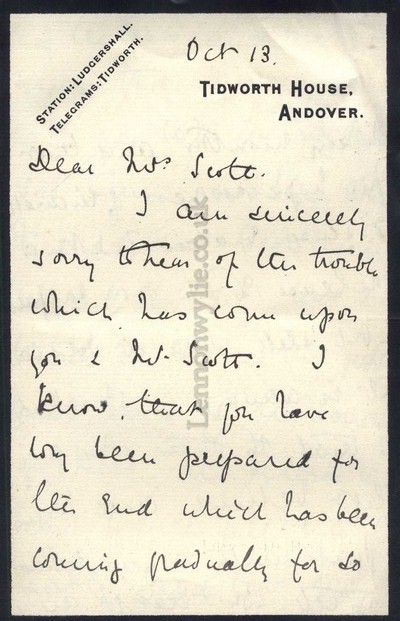 STATION: LUDGERSHALL.
TELEGRAMS: TIDWORTH.
Oct 13.
TIDWORTH HOUSE,
ANDOVER.
Dear Mrs Scott.
I am sincerely
sorry to hear of the trouble
which has come upon
you & Mr Scott. I
know that you have
long been prepared for
the end which has been
coming gradually for so
Lennonwylie.co.uk